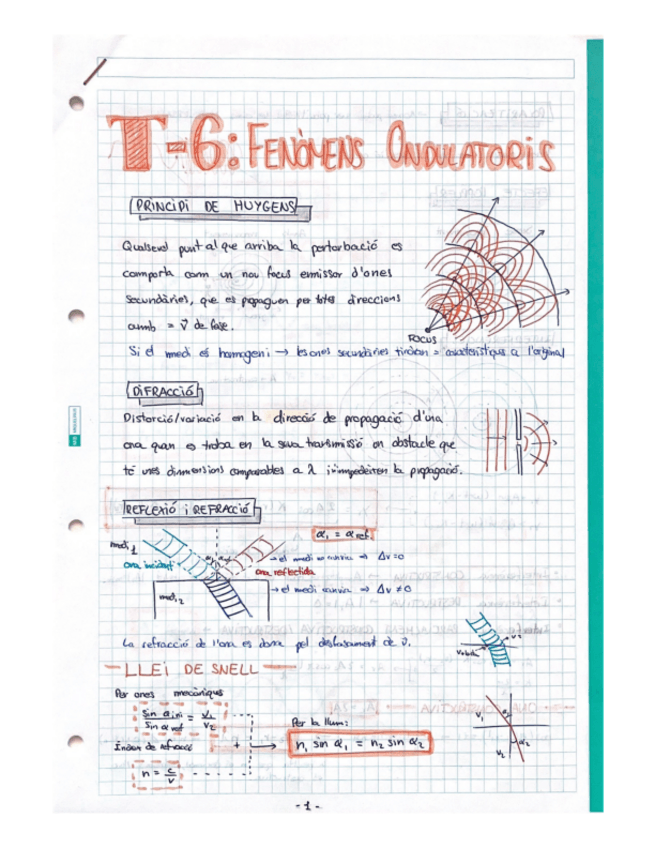 T-6: FENÒMENS ONDULATORIS
PRINCIPI DE HUYGENS
Qualsevol punt al que arriba la pertorbació es
comporta com un nou focus emissor d'ones
secundàries, que es propaguen per totes direccions
amb = v⃗ de fase.
FOCUS
Si el medi és homogeni → les ones secundàries tindran = característiques a l'original
DIFRACCIÓ
Distorció/variació en la direcció de propagació d'una
ona quan es troba en la seva transmissió un obstacle que
té unes dimensions comparables a λ i impedeixen la propagació.
REFLEXIÓ i REFRACCIÓ
α₁ = α ref.
medi 1
ona incident
ona reflectida
→ el medi no canvia ⇒ Δv=0
medi 2
→ el medi canvia ⇒ Δv ≠ 0
La refracció de l'ona es dona pel desfasament de v⃗.
LLEI DE SNELL
Per ones mecàniques
sin α ini / sin α ref = v₁ / v₂
Índex de refracció
n = c/v
+
Per la llum:
n₁ sin α₁ = n₂ sin α₂
v₁
α₂
v₂
- 1 -